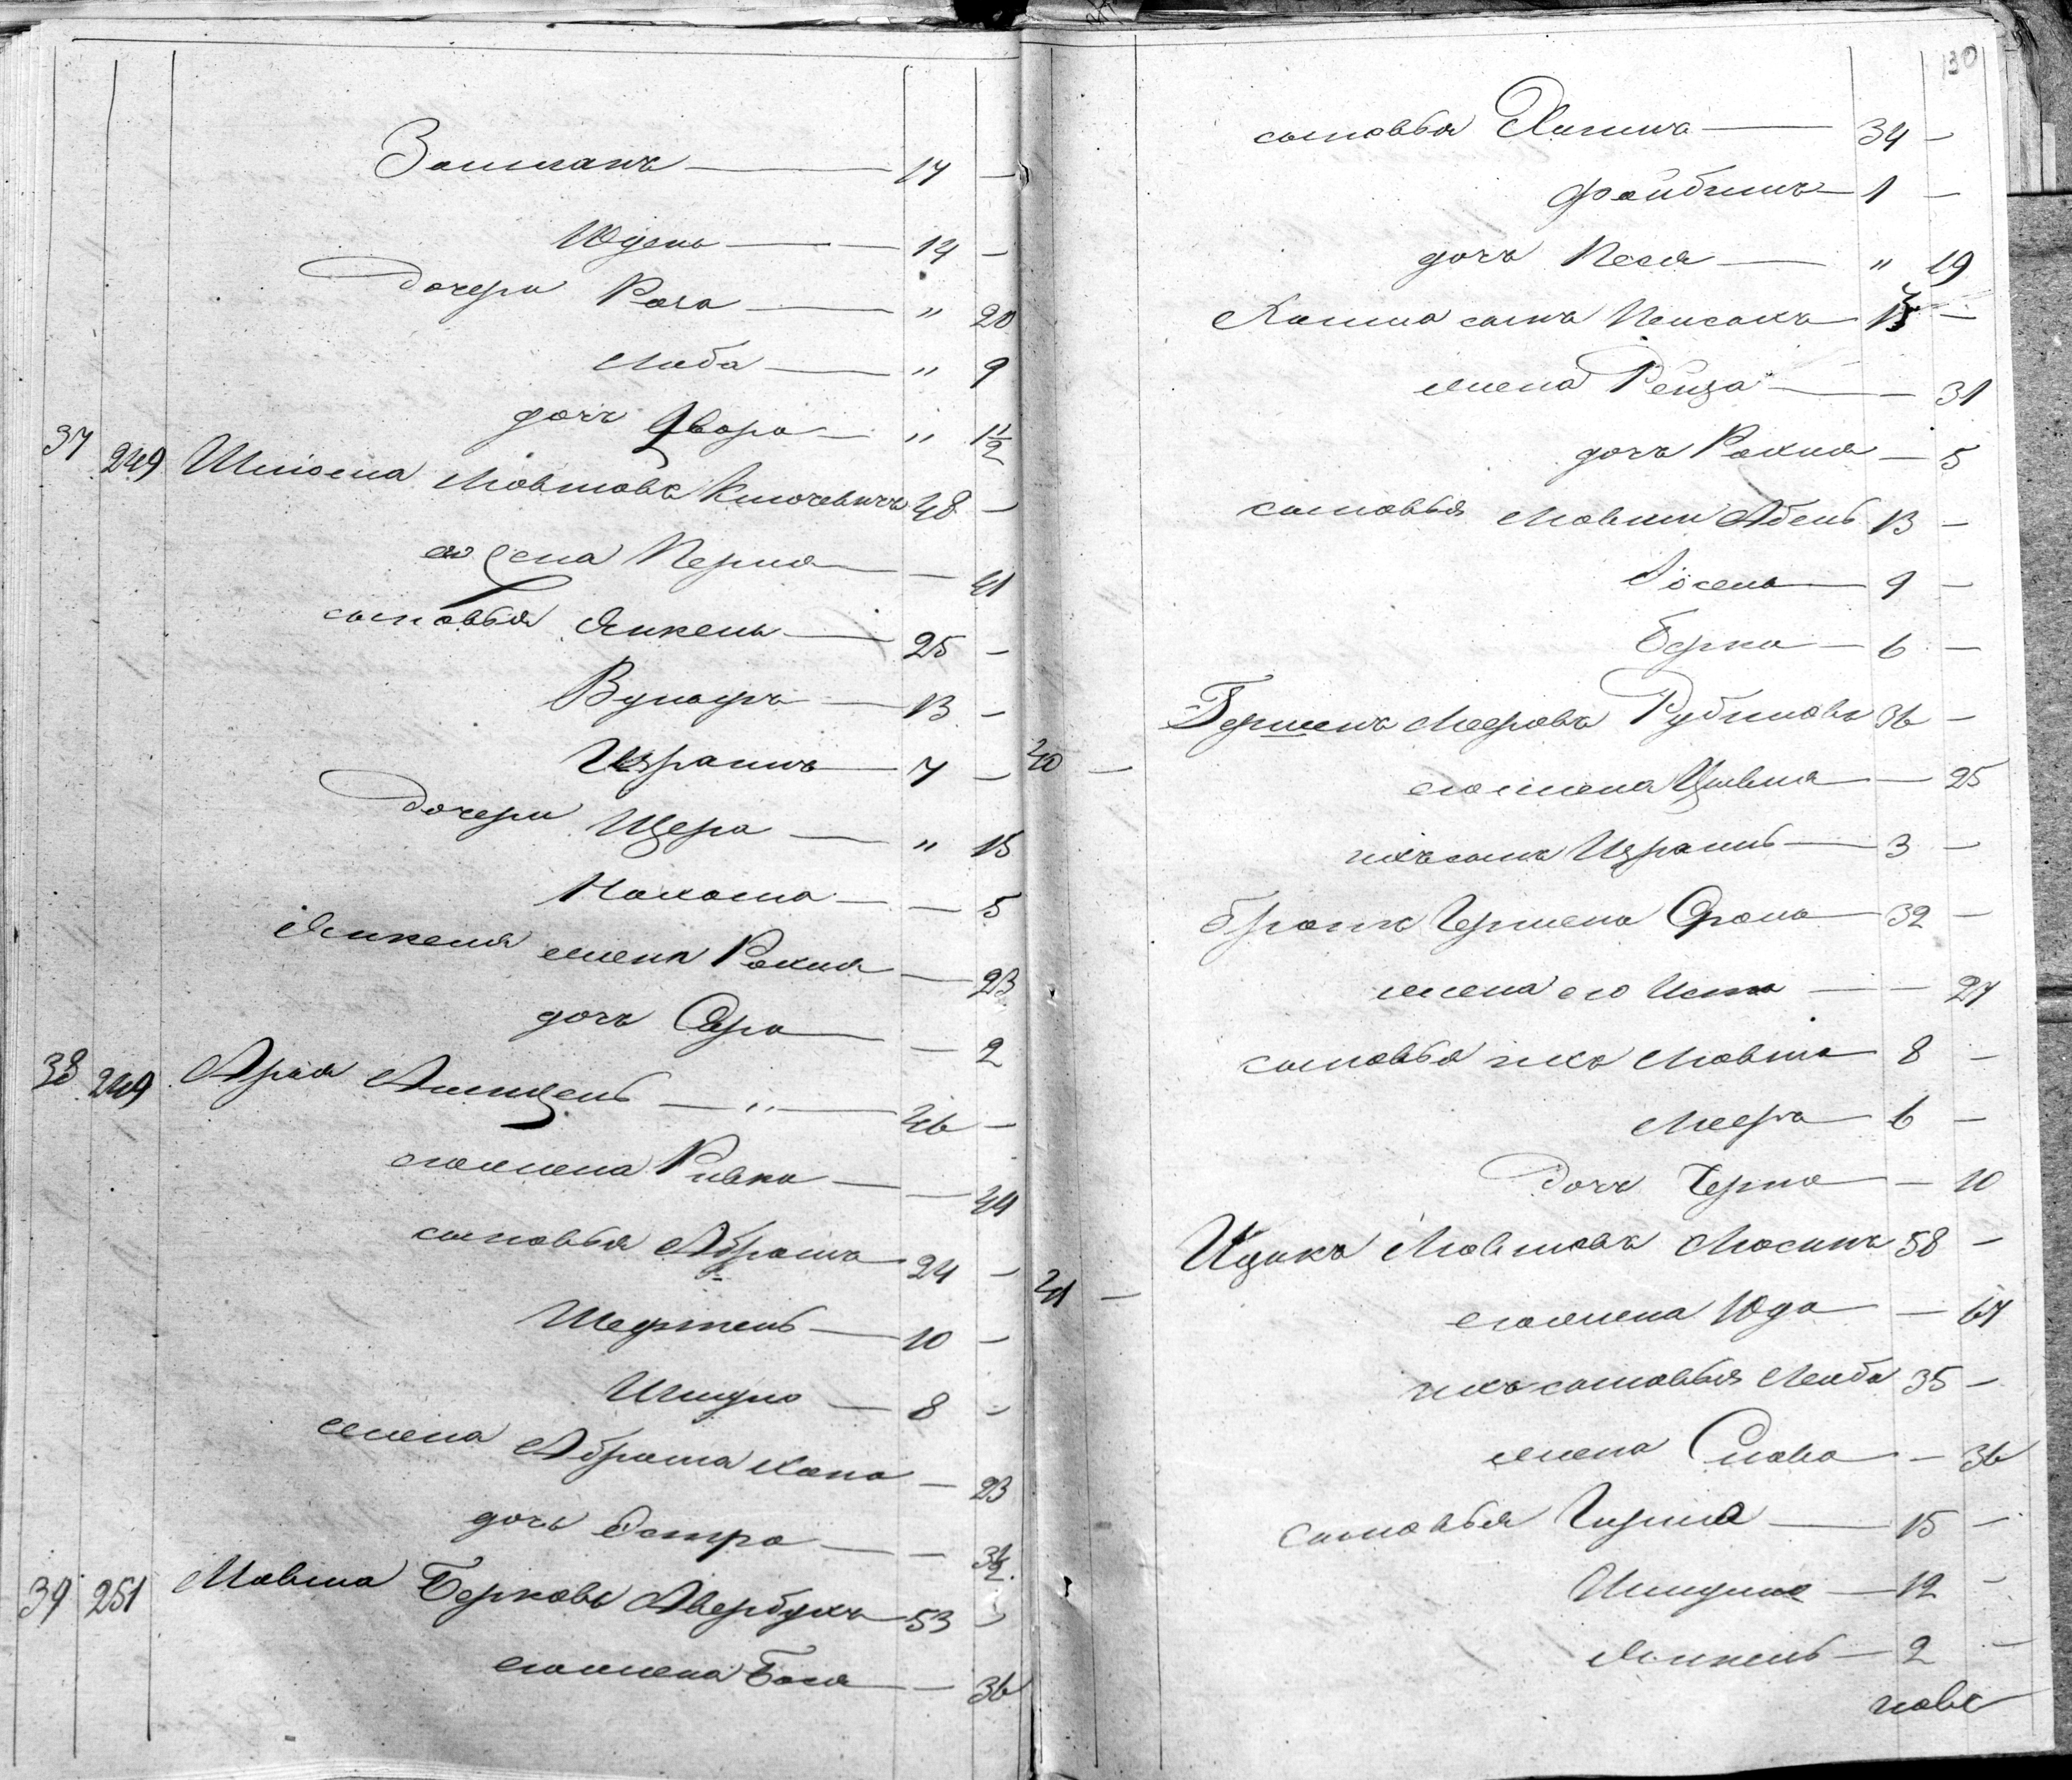 Залманъ — 17 —
Юдель — 14 —
дочери Рога — " 20
Люба — " 9
дочь Двора — " 1½
37 249 Шліома Мовшовъ Ключевичъ 48 —
его жена Перля — — 41
сыновья Янкель — 25 —
Вульфъ — 13 —
Израиль — 7 —
дочери — " 15
Нахама — — 5
Янкеля жена Рохля — — 23
дочь Сора — — 2
38 249 Арія — " — 46 —
его жена Ривка — — 44
сыновья Абрамъ 24 —
Шефтель — 10 —
8 —
жена Абрама Хана — 23
дочь Естра — — 3½
39 251 Мовша Берковъ Авербухъ 53 —
его жена Бася — — 36
130
сыновья Хаимъ — 34 —
Файбишъ — 1 —
дочь Песя — " 19
Хаима сынъ Пейсахъ —
жена Рейза — — 31
дочь Рохля — 5
сыновья Мовши Абель 13 —
Іосель — 9 —
Берко — 6 —
40 — Гершенъ Мееровъ Рубиновъ 36 —
его жена Цивья — — 25
ихъ сынъ Израиль — 3 —
братъ Гершена Сролъ — 32 —
жена его — — 27
сыновья ихъ Мовша 8 —
Мееръ — 6 —
дочь Черна — 10
41 — Ицикъ Мовшовъ Мосинъ 58 —
его жена Юда — — 67
ихъ сыновья Лейба 35 —
жена Слава — — 36
сыновья Гирша — 15 —
12 —
Янкель — 2 —